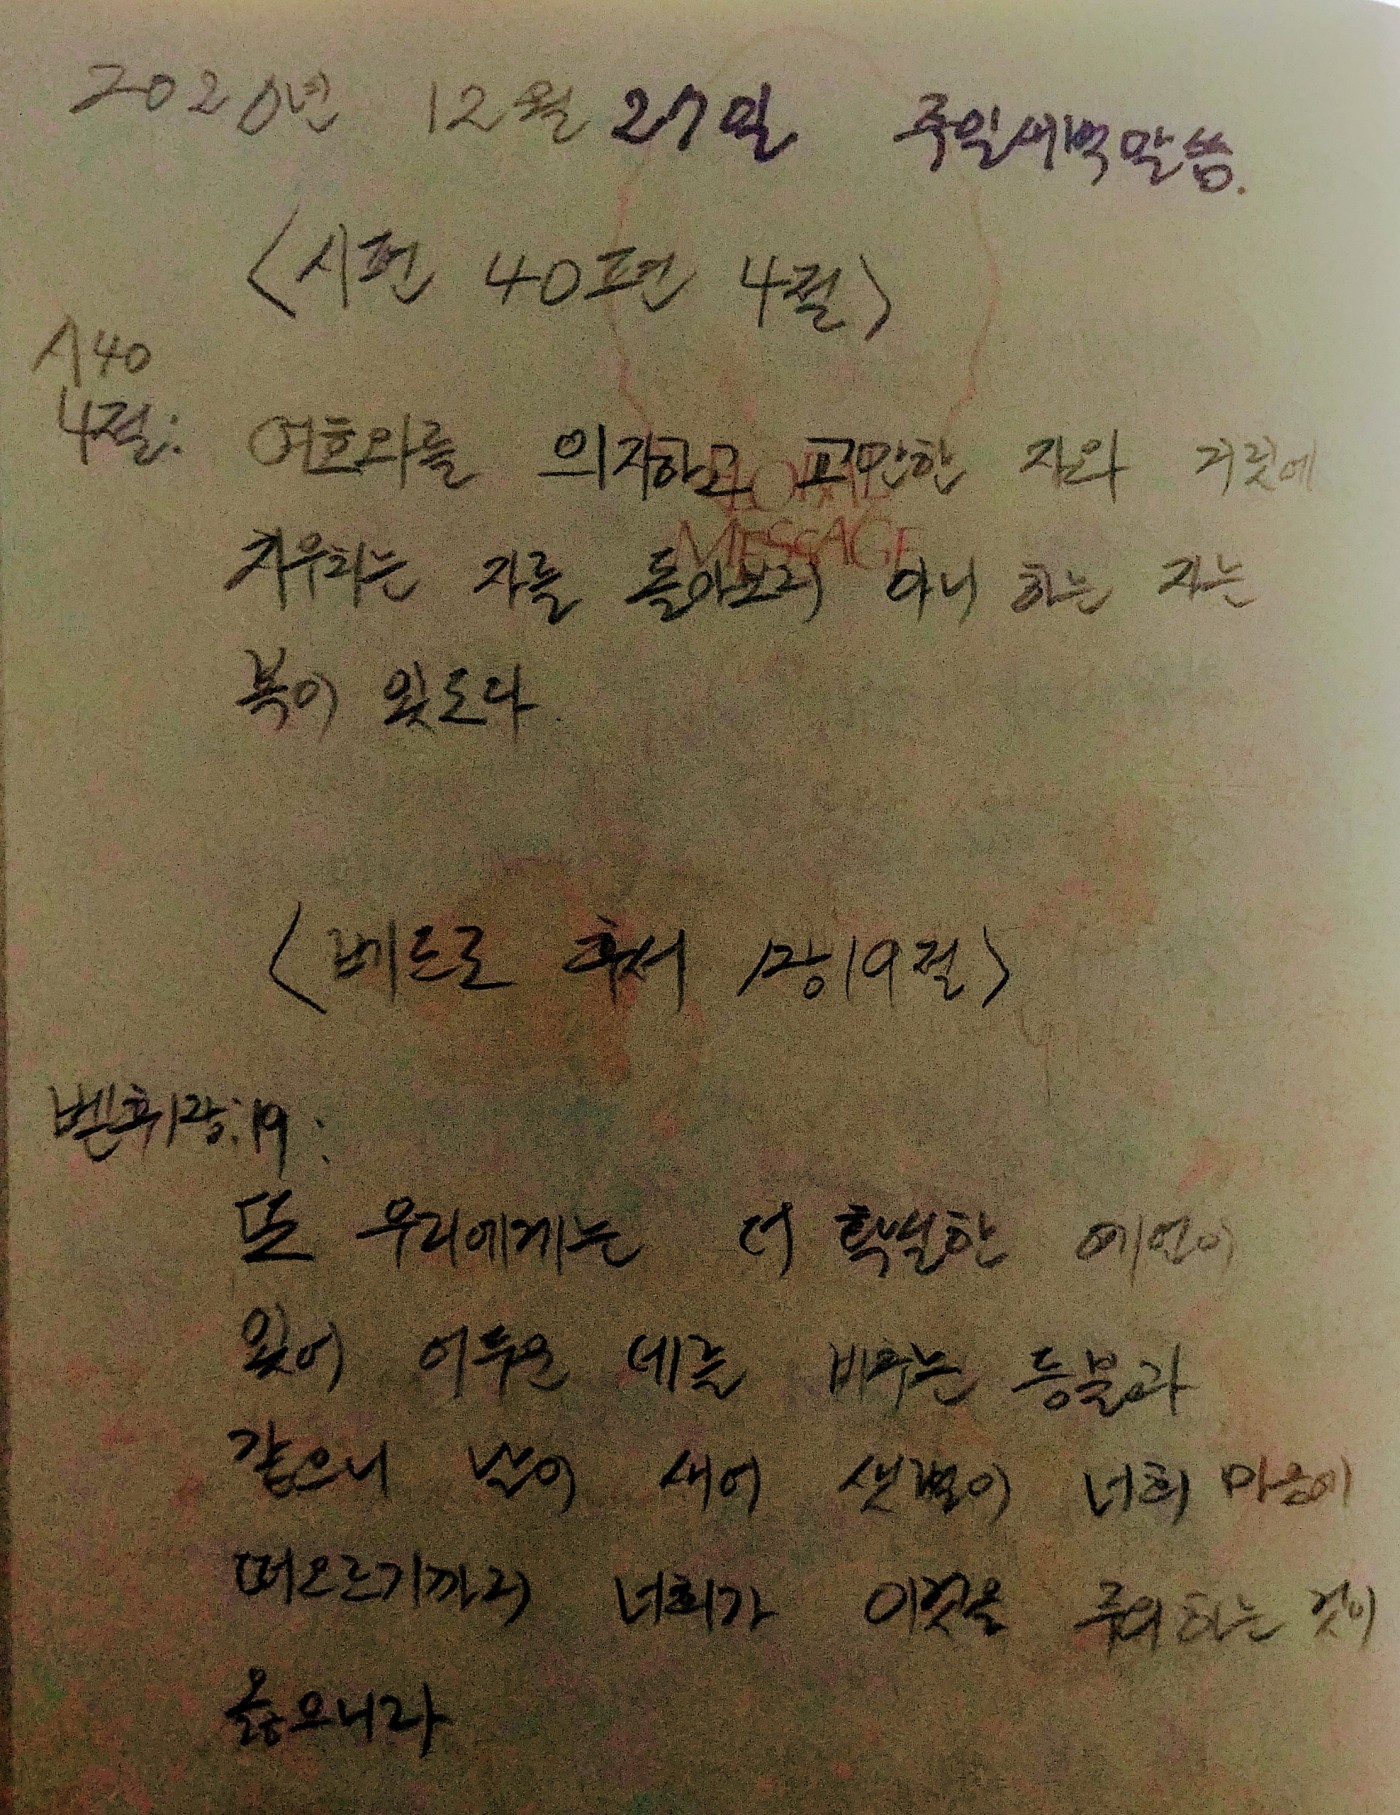 2020년 12월 27일 주일새벽말씀.
<시편 40편 4절>
시40
4절: 여호와를 의지하고 교만한 자와 거짓에
치우치는 자를 돌아보지 아니 하는 자는
복이 있도다
GLOBAL
MESSAGE
<베드로 후서 1장19절>
벧후1장:19:
또 우리에게는 더 확실한 예언이
있어 어두운 데를 비추는 등불과
같으니 날이 새어 샛별이 너희 마음에
떠오르기까지 너희가 이것을 주의하는 것이
옳으니라